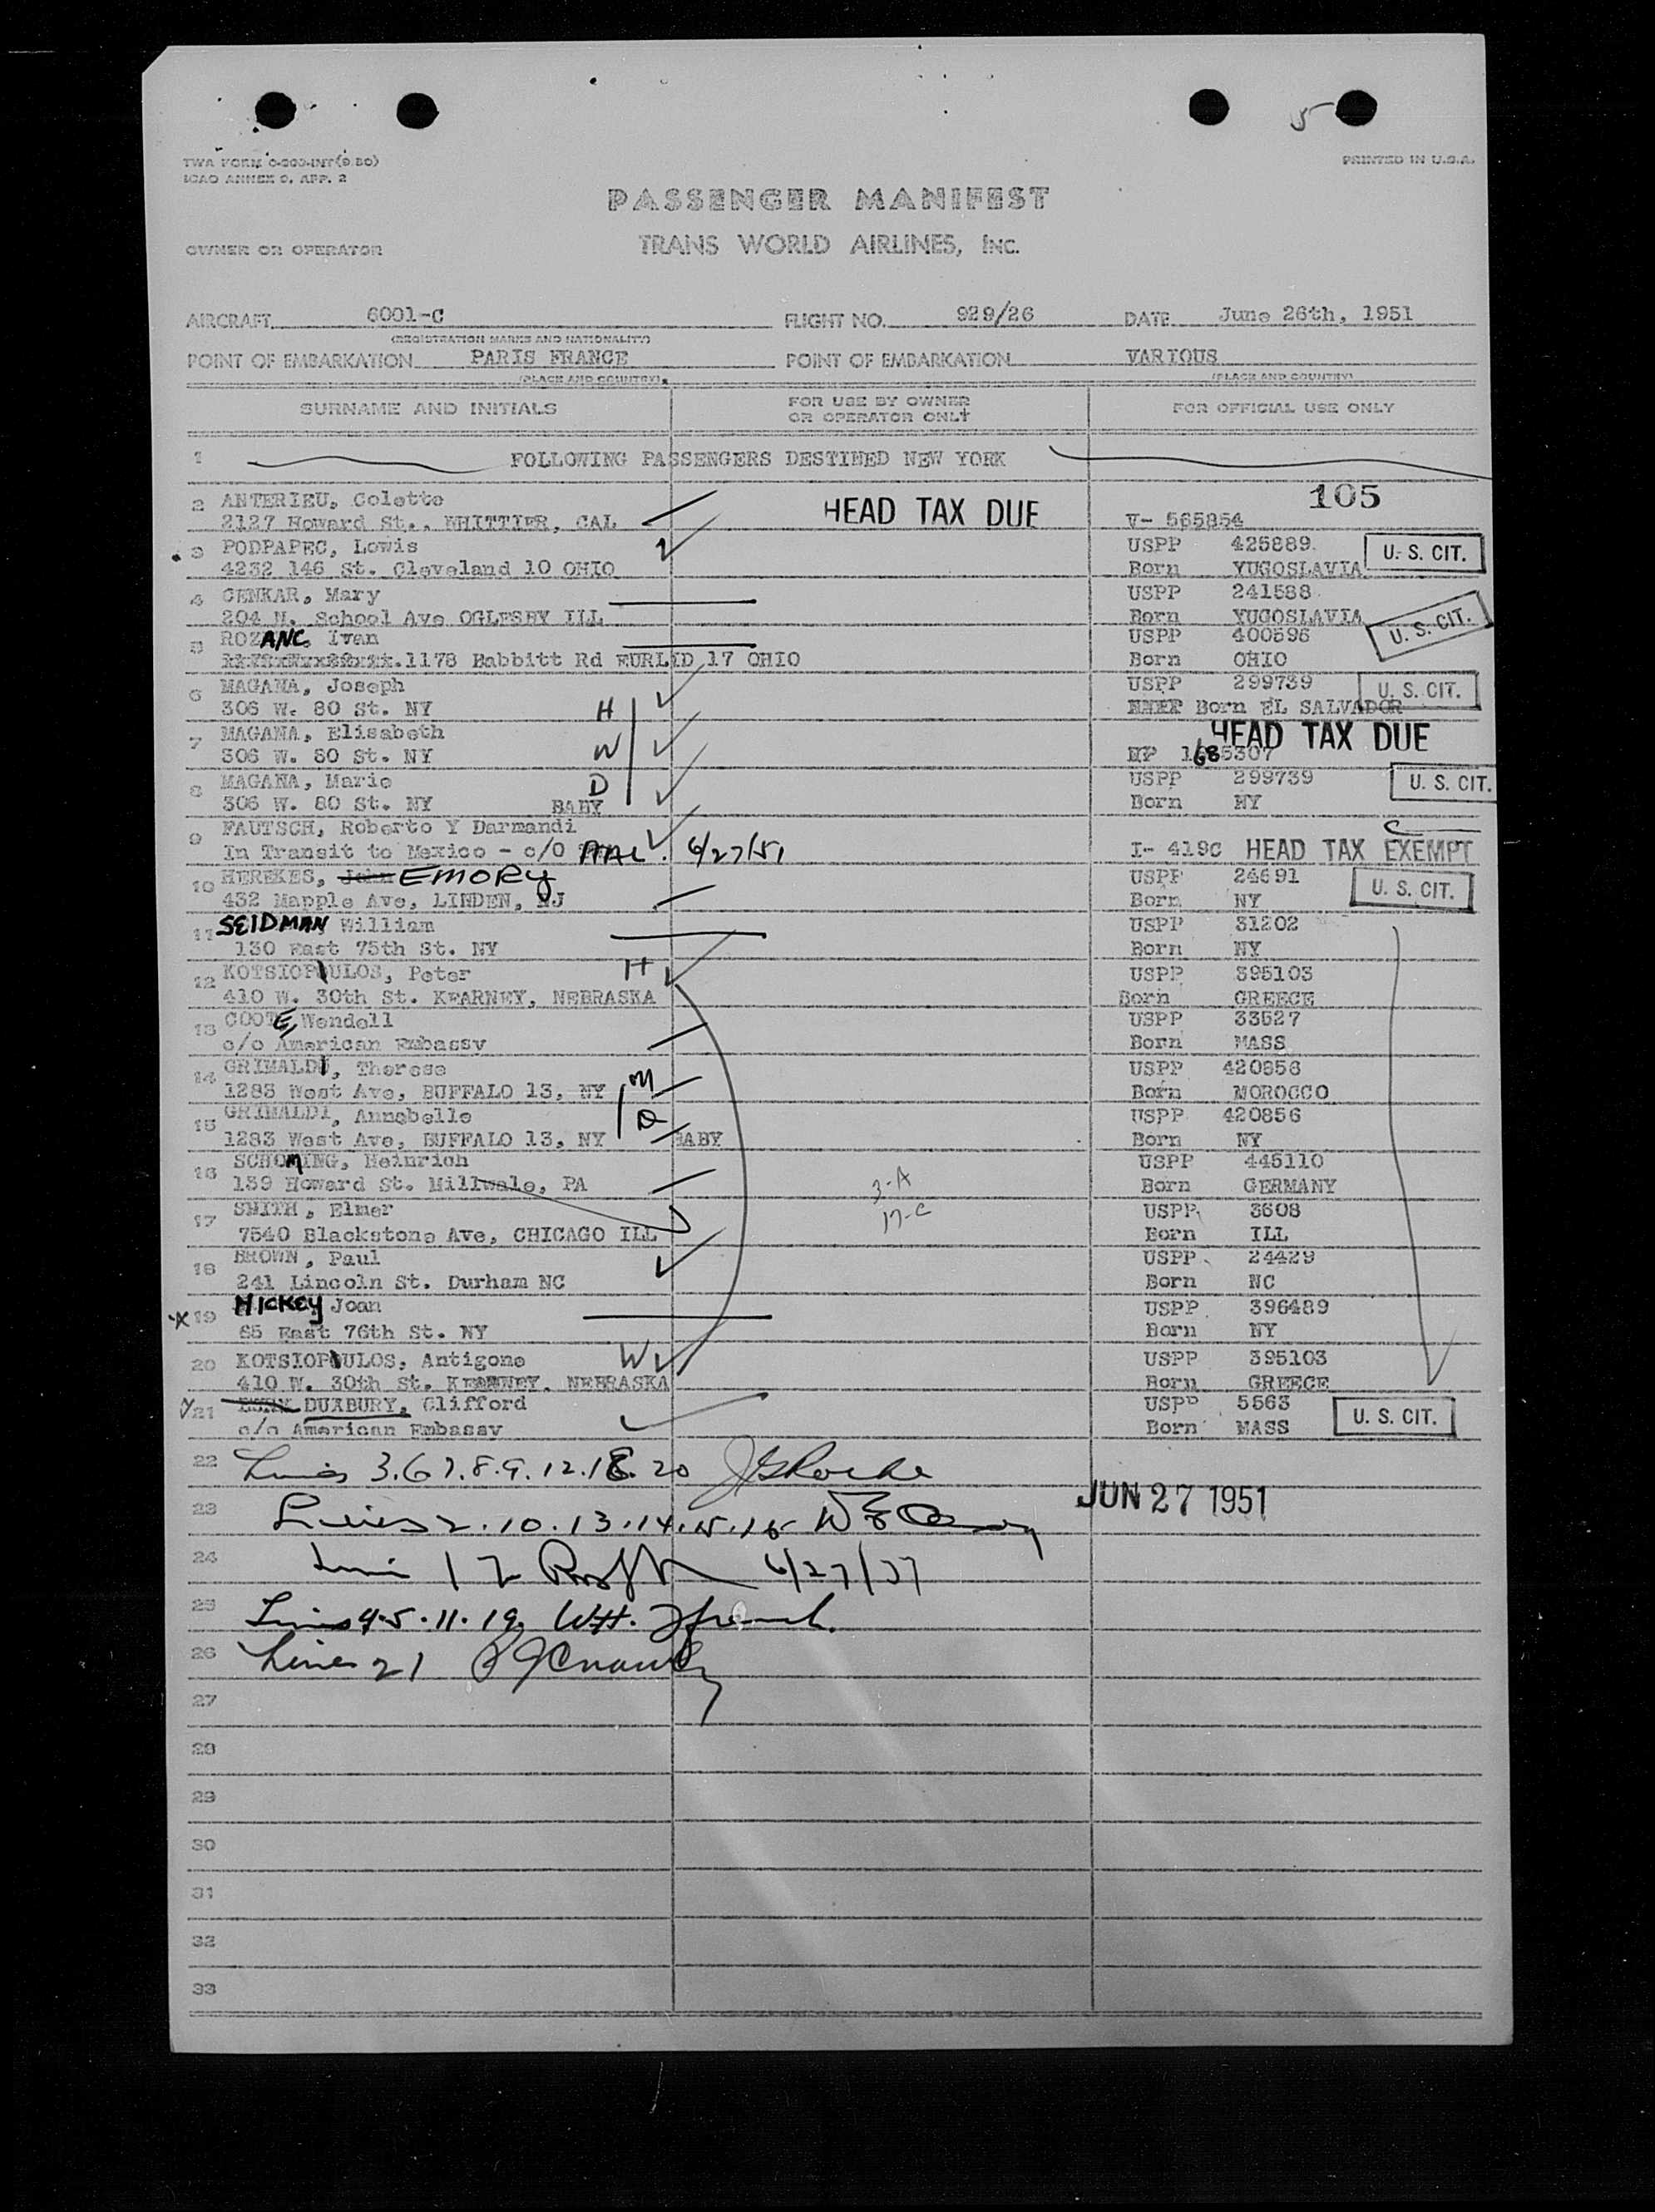 5
TWA FORM
ICAO ANNEX 9, APP. 2
PRINTED IN U.S.A.
PASSENGER MANIFEST
OWNER OR OPERATOR
TRANS WORLD AIRLINES, INC.
AIRCRAFT 6001-C FLIGHT NO. 929/26 DATE June 26th, 1951
(REGISTRATION MARKS AND NATIONALITY)
POINT OF EMBARKATION PARIS FRANCE POINT OF EMBARKATION VARIOUS
(PLACE AND COUNTRY) (PLACE AND COUNTRY)
SURNAME AND INITIALS FOR USE BY OWNER OR OPERATOR ONLY FOR OFFICIAL USE ONLY
1 FOLLOWING PASSENGERS DESTINED NEW YORK
2 ANTERIEU, Colette HEAD TAX DUE 105
2127 Howard St., WHITTIER, CAL V- 565854
3 PODPAPEC, Lowis USPP 425889 U. S. CIT.
4232 146 St. Cleveland 10 OHIO Born YUGOSLAVIA
4 CENKAR, Mary USPP 241588
204 N. School Ave OGLESBY ILL Born YUGOSLAVIA U. S. CIT.
5 ROZANC, Ivan USPP 400596
1178 Babbitt Rd EURLID 17 OHIO Born OHIO
6 MAGANA, Joseph USPP 299739 U. S. CIT.
306 W. 80 St. NY H Born EL SALVADOR
7 MAGANA, Elisabeth HEAD TAX DUE
306 W. 80 St. NY W 1685307
8 MAGANA, Marie D USPP 299739 U. S. CIT.
306 W. 80 St. NY BABY Born NY
9 FAUTSCH, Roberto Y Darmandi
In Transit to Mexico - c/o AAL 6/27/51 I- 419C HEAD TAX EXEMPT
10 HEREKES, John EMORY USPP 24691 U. S. CIT.
432 Mapple Ave, LINDEN, NJ Born NY
11 SEIDMAN William USPP 31202
130 East 75th St. NY Born NY
12 KOTSIOPULOS, Peter H USPP 395103
410 W. 30th St. KEARNEY, NEBRASKA Born GREECE
13 COOTE, Wendell USPP 33527
c/o American Embassy Born MASS
14 GRIMALDI, Therese M USPP 420856
1283 West Ave, BUFFALO 13, NY Born MOROCCO
15 GRIMALDI, Annabelle D USPP 420856
1283 West Ave, BUFFALO 13, NY BABY Born NY
16 SCHOMING, Heinrich USPP 445110
159 Howard St. Millwale, PA 3-A Born GERMANY
17 SMITH, Elmer 17-C USPP 3608
7540 Blackstone Ave, CHICAGO ILL Born ILL
18 BROWN, Paul USPP 24429
241 Lincoln St. Durham NC Born NC
19 HICKEY Joan USPP 396489
65 East 76th St. NY Born NY
20 KOTSIOPULOS, Antigone W USPP 395103
410 W. 30th St. KEARNEY, NEBRASKA Born GREECE
21 DUXBURY, Clifford USPP 5563 U. S. CIT.
c/o American Embassy Born MASS
22 Lines 3.6 7.8.9.12.18.20
23 Lines 2.10.13.14.15.16 JUN 27 1951
24 Line 17
25 Lines 4.5.11.19 W.H.
26 Lines 21
27
28
29
30
31
32
33